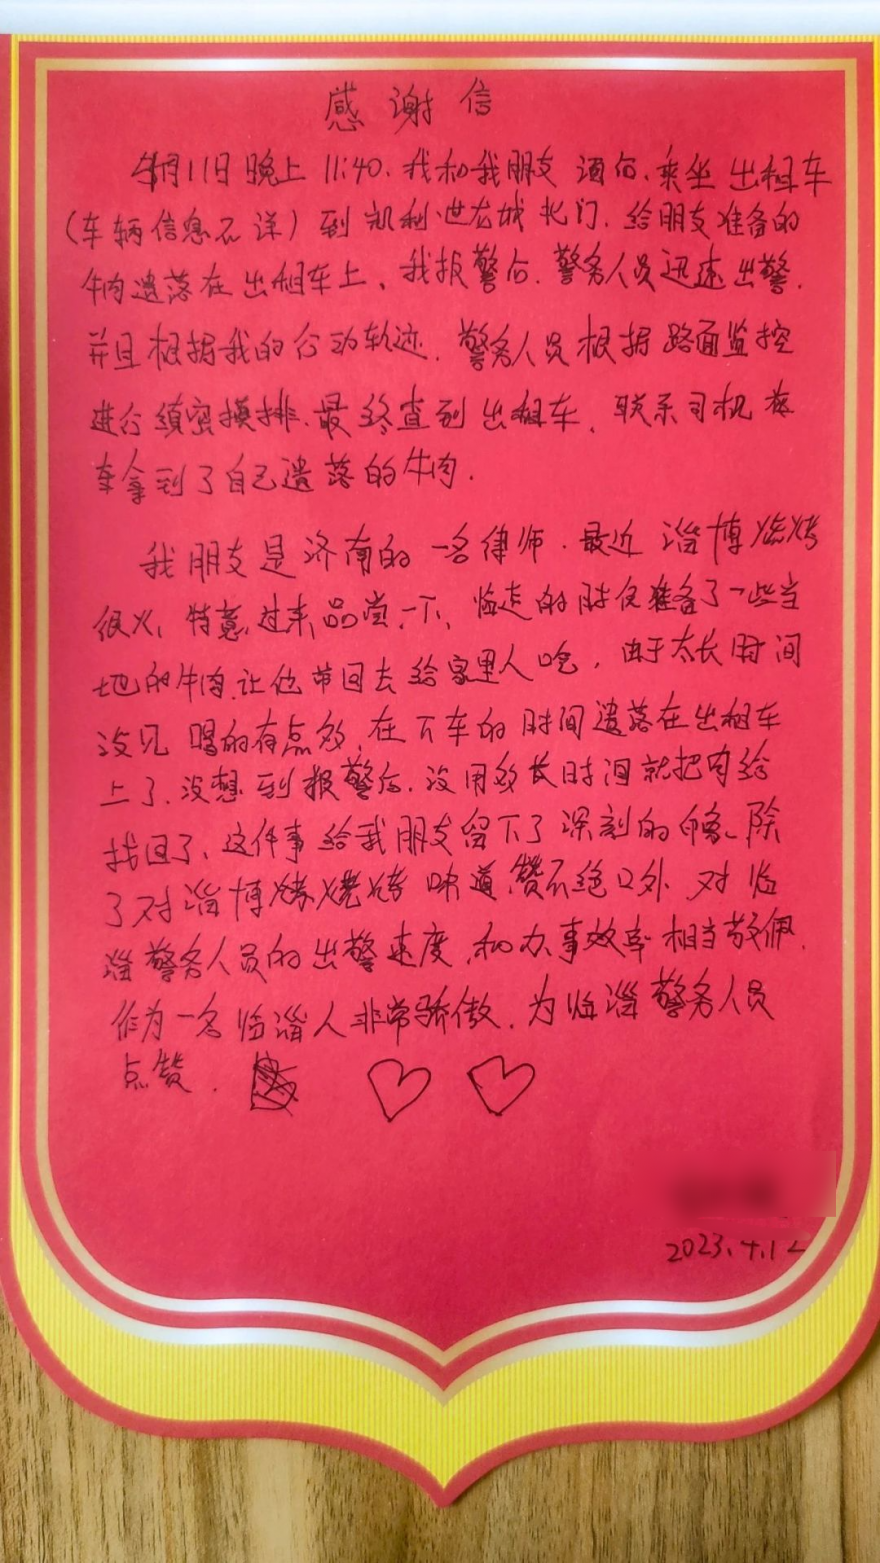 感谢信
4月11日晚上11:40.我和我朋友酒后、乘坐出租车
(车辆信息不详)到凯利世龙城北门.给朋友准备的
牛肉遗落在出租车上、我报警后.警务人员迅速出警.
并且根据我的行动轨迹.警务人员根据路面监控
进行缜密摸排.最终查到出租车、联系司机
拿到了自己遗落的牛肉.
我朋友是济南的一名律师.最近淄博烧烤
很火、特意过来品尝一下、临走的时候准备了一些当
地的牛肉让他带回去给家里人吃,由于太长时间
没见喝的有点多,在下车的时间遗落在出租车
上了.没想到报警后.没用多长时间就把肉给
找回了、这件事给我朋友留下了深刻的印象、除
了对淄博烧烤味道赞不绝口外,对临
淄警务人员的出警速度,和办事效率相当敬佩.
作为一名临淄人非常骄傲.为临淄警务人员
点赞.
2023.4.12